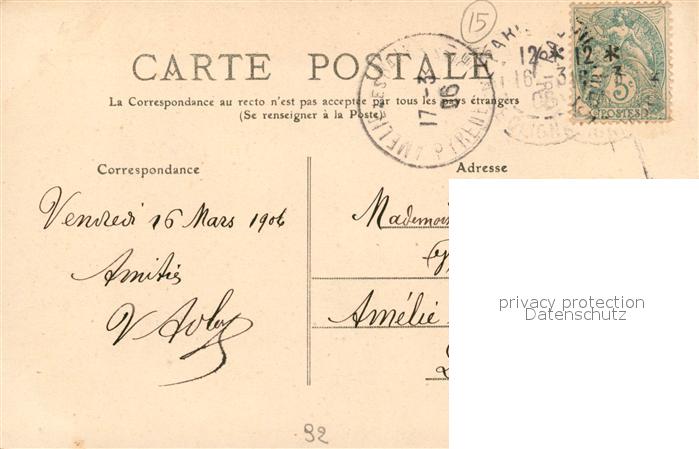 15
CARTE POSTALE
La Correspondance au recto n'est pas acceptée par tous les pays étrangers
(Se renseigner à la Poste)
17 -3
06
PYRENEES
12 * 12 *
16 - 3
5c
POSTES
Correspondance
Adresse
Vendredi 16 Mars 1906
Amitiés
Mademois
Amélie
privacy protection
Datenschutz
92